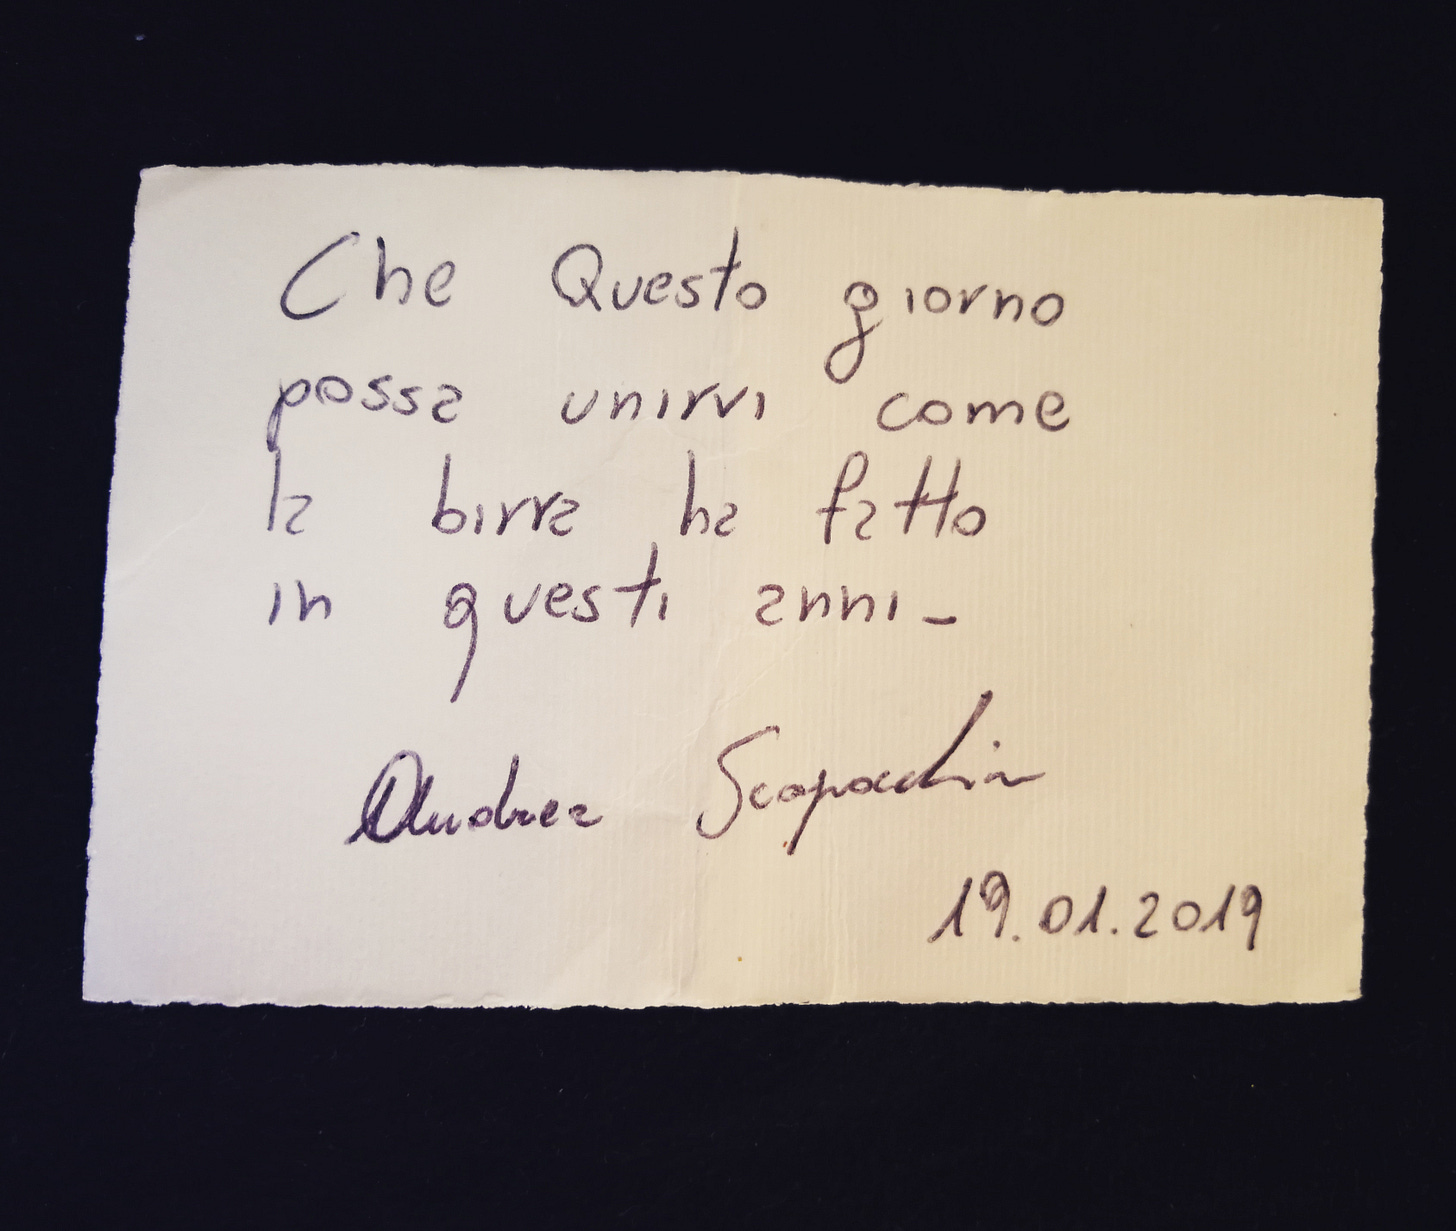 Che Questo giorno
possa unirvi come
la birra ha fatto
in questi anni_
Andrea
19.01.2019